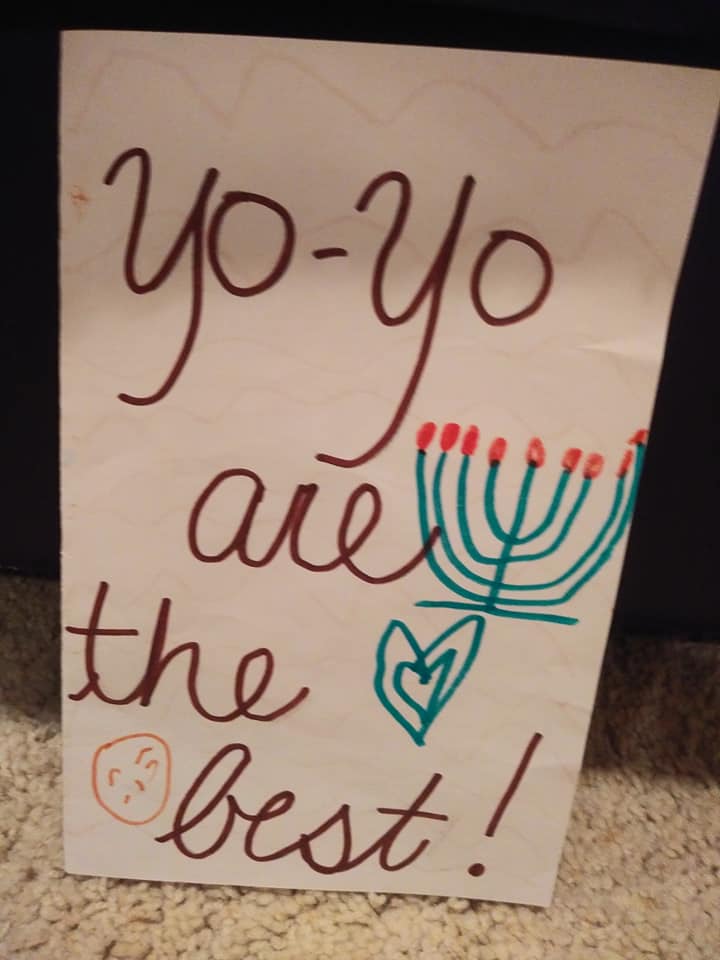 Yo-Yo
are
the
best!